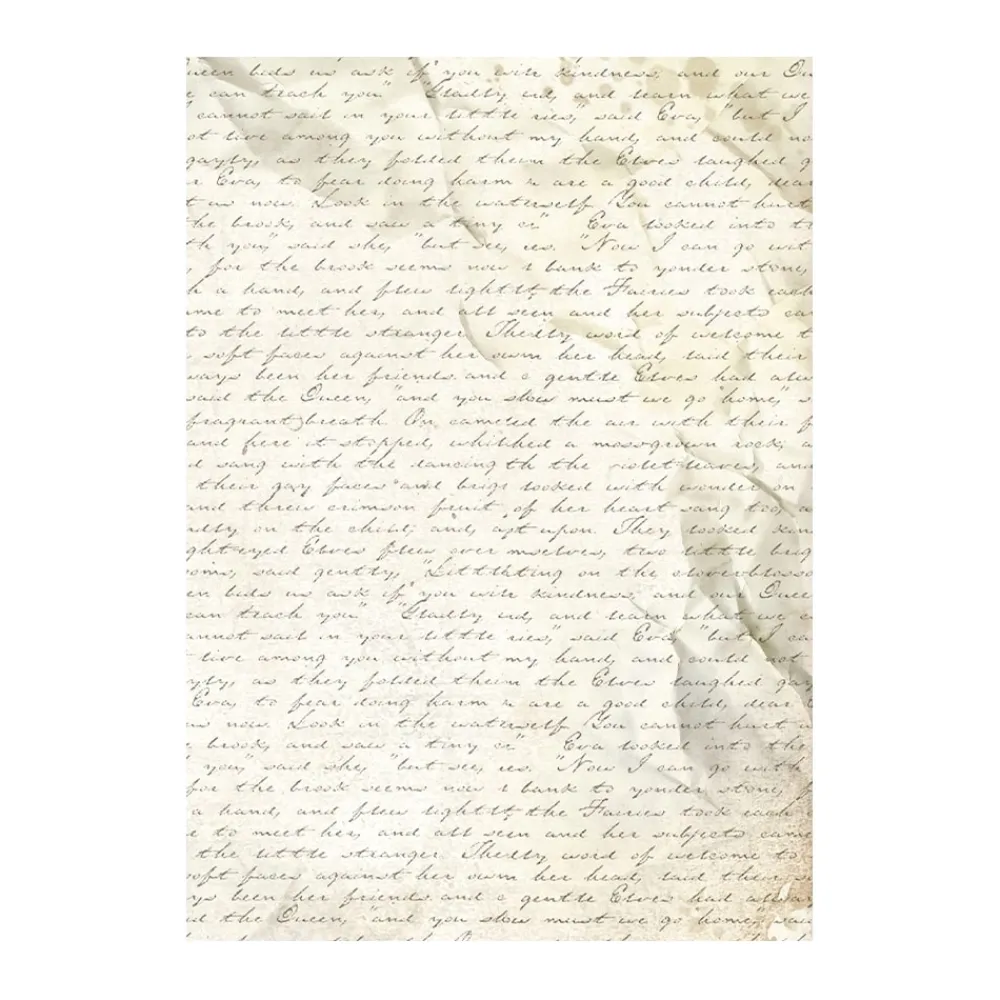 ueen bids us ask if you with kindness, and our Qu
e can teach you." "Gladly ud, and learn what we
cannot sail in your little ries," said Eva, "but I
ot live among you without my hand, and could no
gayly, as they folded them the Elves laughed g
r Eva, to fear doing harm u are a good child, dear
t us now. Look in the waterself. You cannot hurt
he brook, and saw a tiny ce." Eva looked into th
th you," said she, "but see, res. "Now I can go wit
, for the brook seems now a bank to yonder stone,
h a hand, and flew lightlt, the Fairies took each
ame to meet her, and all seen and her subjects ca
to the little stranger. Thedly word of welcome t
soft faces against her own her head, laid their
ways been her friends. and e gentle Elves had alw
said the Queen, "and you show must we go home," s
fragrant breath. On cameled the air with their f
and here it stopped, whilhed a mossgrown rock, a
d sang with the dancing th the violet-leaves, and
their gay faces and brigt looked with wonder on
and threis crimson fruit, of her heart sang too, a
ndly on the child; and, apt upon. They looked kin
ght-eyed Elves flew over mselves, two little brig
oms, said gently, "Littleting on the cloverblosso
en bids us ask if you with kindness, and our Quee
can teach you." "Gladly ud, and learn what we c
annot sail in your little ries," said Eva, "but I ca
live among you without my hand, and could not
yly, as they folded them the Elves laughed gay
Eva, to fear doing harm u are a good child, dear E
us now. Look in the waterself. You cannot hurt u
e brook, and saw a tiny ce." Eva looked into the
you," said she, "but see, res. "Now I can go with
for the brook seems now a bank to yonder stone, f
a hand, and flew lightlt, the Fairies took each
e to meet her, and all seen and her subjects came
the little stranger. Thedly word of welcome to
soft faces against her own her head, laid their s
ys been her friends. and e gentle Elves had alway
id the Queen, "and you show must we go home," said